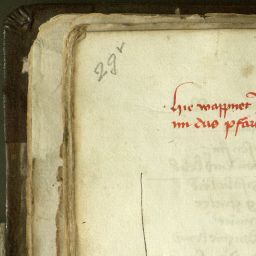 29v
hie wappnet
im das pfar